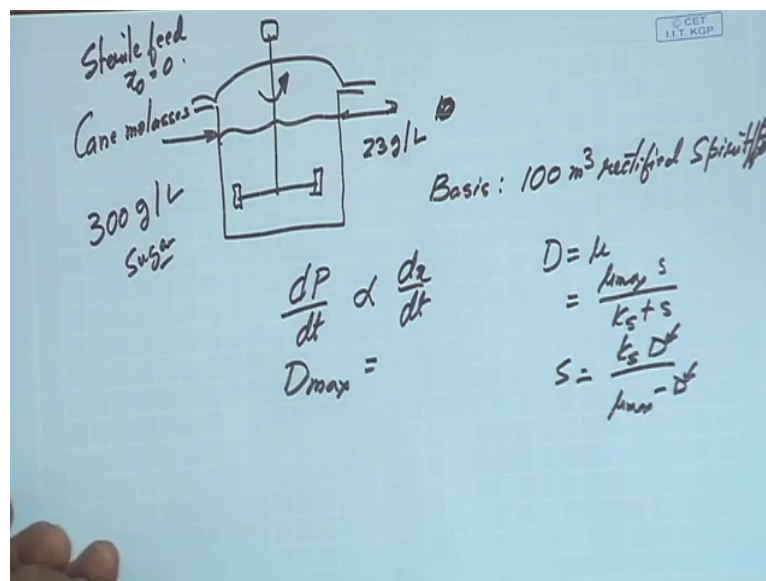 © CET
I.I.T. KGP
Sterile feed
x₀ = 0.
Cane molasses
23 g/L
300 g/L
Sugar
Basis: 100 m³ rectified Spirit
dP/dt ∝ dx/dt
Dmax =
D = μ
= μmax s / (Ks + s)
S = Ks D / (μmax - D)